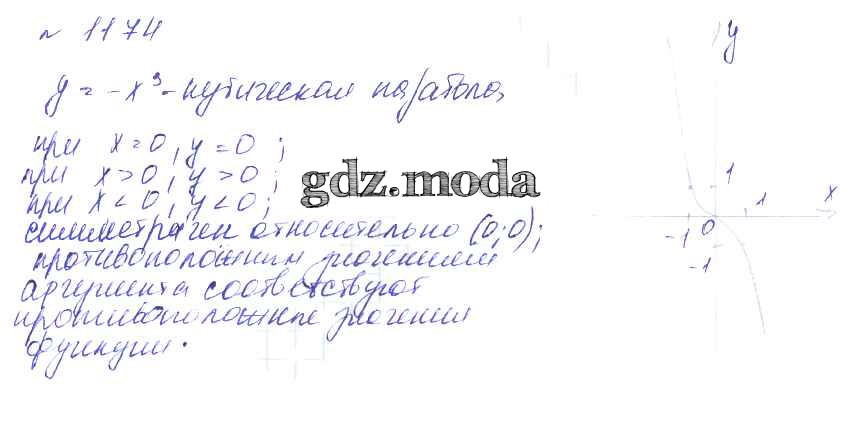 № 1174
y = -x³ - кубическая парабола
при x = 0, y = 0 ;
при x > 0, y > 0 ;
при x < 0, y < 0 ;
gdz.moda
симметричен относительно (0;0);
противоположным значениям
аргумента соответствуют
противоположные значения
функции.
y
1
x
1
-1
0
-1